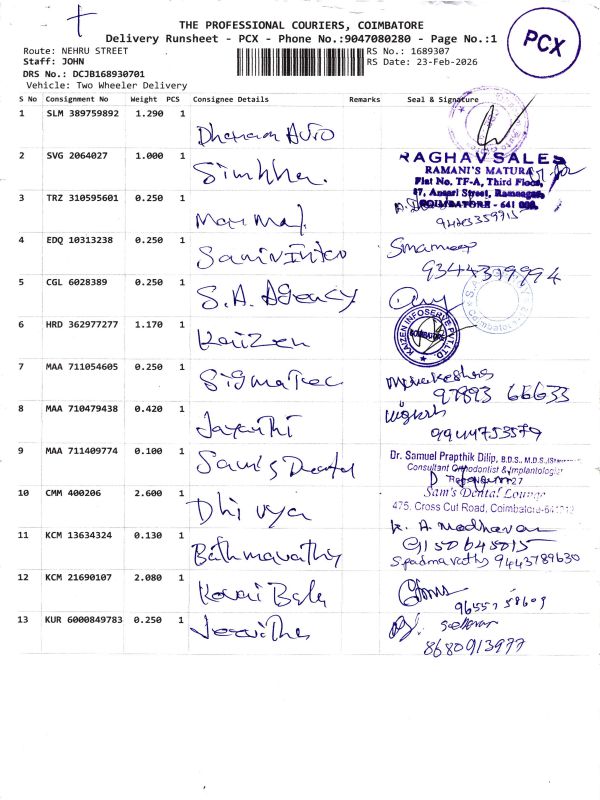 THE PROFESSIONAL COURIERS, COIMBATORE
Delivery Runsheet - PCX - Phone No.:9047080280 - Page No.:1
PCX
Route: NEHRU STREET
RS No.: 1689307
Staff: JOHN
RS Date: 23-Feb-2026
DRS No.: DCJB168930701
Vehicle: Two Wheeler Delivery
S No Consignment No Weight PCS Consignee Details Remarks Seal & Signature
1 SLM 389759892 1.290 1
Auto
2 SVG 2064027 1.000 1
RAGHAV SALES
RAMANI'S MATURA
Flat No. TF-A, Third Floor,
87, Ansari Street, Ramnagar,
COIMBATORE - 641 009.
3 TRZ 310595601 0.250 1
4 EDQ 10313238 0.250 1
9344379994
5 CGL 6028389 0.250 1
S.A. Agency
6 HRD 362977277 1.170 1
Kaizen
KAIZEN INFOSERVE PVT LTD
COIMBATORE
7 MAA 711054605 0.250 1
Sigmatec
97893 66633
8 MAA 710479438 0.420 1
Jayanthi
9 MAA 711409774 0.100 1
Sam's Dental
Dr. Samuel Prapthik Dilip, B.D.S., M.D.S.,
Consultant Orthodontist & Implantologist
Sam's Dental Lounge
475, Cross Cut Road, Coimbatore-641012
10 CMM 400206 2.600 1
Dhivya
K. A. Madhavan
9150645015
11 KCM 13634324 0.130 1
Bathmavathy
9443789630
12 KCM 21690107 2.080 1
Kovai Bala
13 KUR 6000849783 0.250 1
8680913977